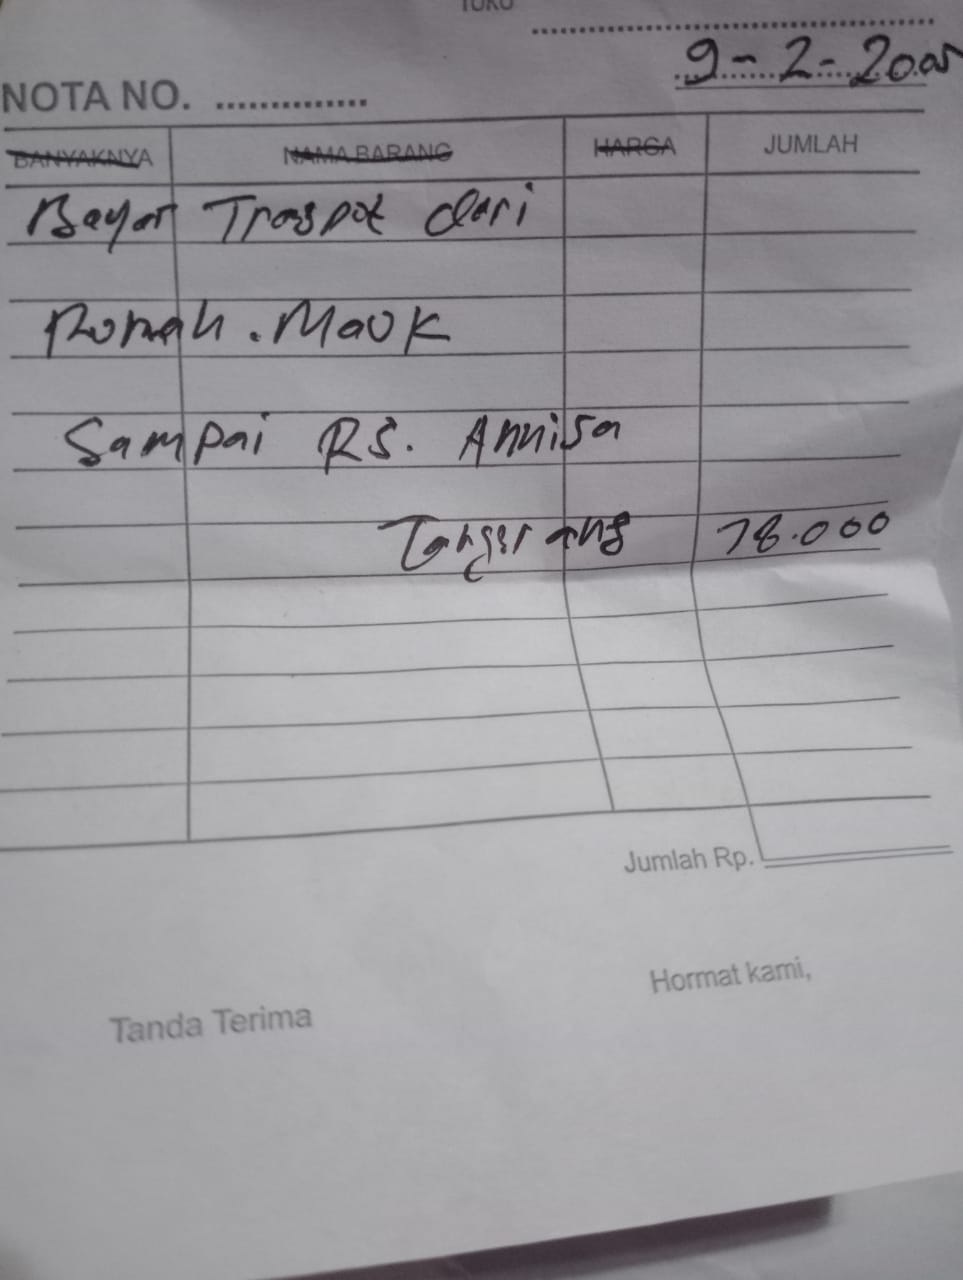 TOKO
9-2-2005
NOTA NO. ..............
BANYAKNYA NAMA BARANG HARGA JUMLAH
Bayar Traspot dari
Rumah. Mauk
Sampai RS. Annisa
Tangerang 78.000
Jumlah Rp.
Hormat kami,
Tanda Terima